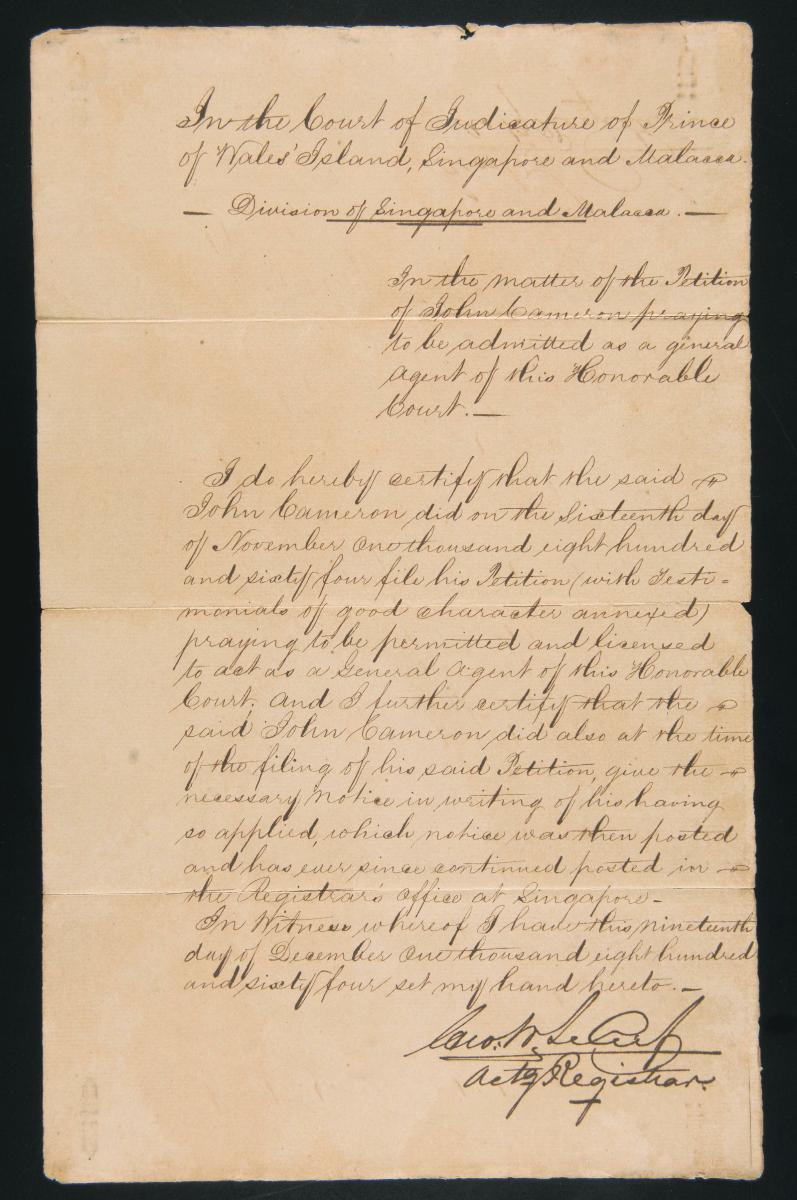 In the Court of Judicature of Prince
of Wales' Island, Singapore and Malacca.
— Division of Singapore and Malacca. —
In the matter of the Petition
of John Cameron praying
to be admitted as a general
Agent of this Honorable
Court. —
I do hereby certify that the said
John Cameron did on the Sixteenth day
of November One thousand eight hundred
and sixty four file his Petition (with Testi-
monials of good character annexed)
praying to be permitted and licensed
to act as a General Agent of this Honorable
Court; And I further certify that the
said John Cameron did also at the time
of the filing of his said Petition, give the
necessary Notice in writing of his having
so applied, which notice was then posted
and has ever since continued posted in
the Registrar's Office at Singapore -
In Witness whereof I have this nineteenth
day of December One thousand eight hundred
and sixty four set my hand hereto. —
Geo. W.
Actg Registrar.